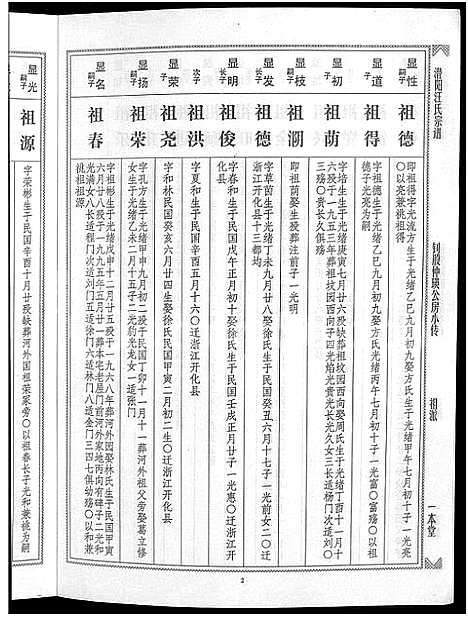 清阳汪氏宗谱
钊股仲瑛公房小传
祖派
一本堂
显性
嗣子
祖德
即祖得字光流方生于光绪乙巳九月初九娶方氏生于光绪甲午七月初十子一光亮
○以光亮兼祧祖得
显道
子
祖得
字祖德生于光绪乙巳九月初九娶方氏光绪丙午七月初十子一光富○富殇○以祖
德子光亮为嗣
显初
子
祖荫
字培生生于光绪庚寅七月廿六殁缺葬祖坟园西向娶周氏生于光绪丁酉十一月十
六殁于一九五三年葬祖坟园西向子四光焰光贵光长光久女三长适杨门次适刘○
三殇○贵长久俱殇
显枝
嗣子
祖浻
即祖荫娶生殁葬注前子一光明
显发
子
祖德
字草茵生于光绪丁未九月廿六娶余氏生于民国癸丑六月十七子一光前女二○迁
浙江开化县十三都均
显明
长子
祖俊
字春和生于民国戊午正月初十娶徐氏生于民国壬戌正月廿子一光惠○迁浙江开
化县
次子
祖洪
字夏和生于民国辛酉五月十六○迁浙江开化县
显荣
子
祖尧
字和林民国癸亥六月廿四生娶徐氏民国甲寅二月初二生○迁浙江开化县
显扬
嗣子
祖荣
字孔方生于光绪戊申九月初三殁于民国丁卯十一月十一葬河外祖父旁娶葛立修
女生于光绪乙未二月初五子二光豹光龙女一适张门
显名
嗣子
祖春
字祖彬生于光绪戊申十二月廿五殁于一九六八年葬河外园娶林氏生于民国甲寅
六月廿八殁于一九九五年五月廿一葬本宅老屋门前河外家地丙向有碑子二光和
光满女八长适程门次适刘门五适徐门六适林门八适金门三四七俱幼殇○以和兼
祧祖祖源
显光
嗣子
祖源
字荣彬生于民国辛酉十月廿殁缺葬河外国祖荣冢旁○以祖春长子光和兼祧为嗣
2